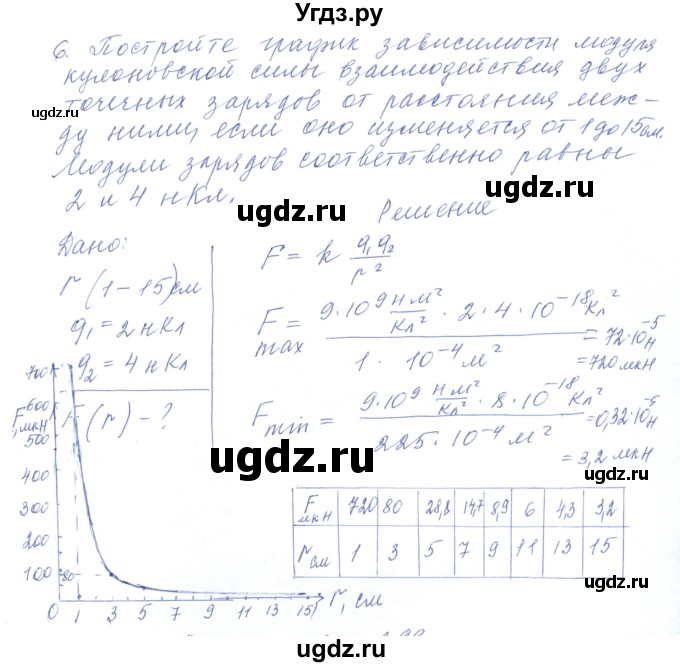 Угдз.ру
6. Постройте график зависимости модуля
кулоновской силы взаимодействия двух
точечных зарядов от расстояния меж-
ду ними, если оно изменяется от 1 до 15 см.
Модули зарядов соответственно равны
2 и 4 нКл.
Решение
Дано:
r (1-15) см
q₁ = 2 нКл
q₂ = 4 нКл
F(r) - ?
F = k q₁q₂ / r²
F max = 9·10⁹ Н м²/Кл² · 2·4·10⁻¹⁸ Кл² / 1·10⁻⁴ м² = 72·10⁻⁵ Н
= 720 мкН
F min = 9·10⁹ Н м²/Кл² · 8·10⁻¹⁸ Кл² / 225·10⁻⁴ м² = 0,32·10⁻⁵ Н
= 3,2 мкН
F мкН 720 80 28,8 14,7 8,9 6 4,3 3,2
r см 1 3 5 7 9 11 13 15
F, мкН
700
600
500
400
300
200
100
80
0 1 3 5 7 9 11 13 15 r, см
ugdz.ru
ugdz.ru
ugdz.ru
ugdz.ru
ugdz.ru
ugdz.ru
ugdz.ru
ugdz.ru
ugdz.ru
ugdz.ru